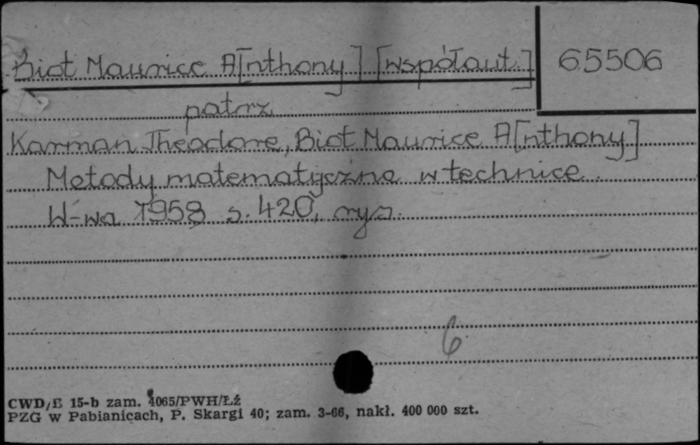 Biot Maurice A[nthony] [współaut.]
65506
patrz
Karman Theodore, Biot Maurice A[nthony]
Metody matematyczne w technice.
W-wa 1958 s. 420, rys.
6
CWD/E 15-b zam. 4065/PWH/Łź
PZG w Pabianicach, P. Skargi 40; zam. 3-66, nakł. 400 000 szt.